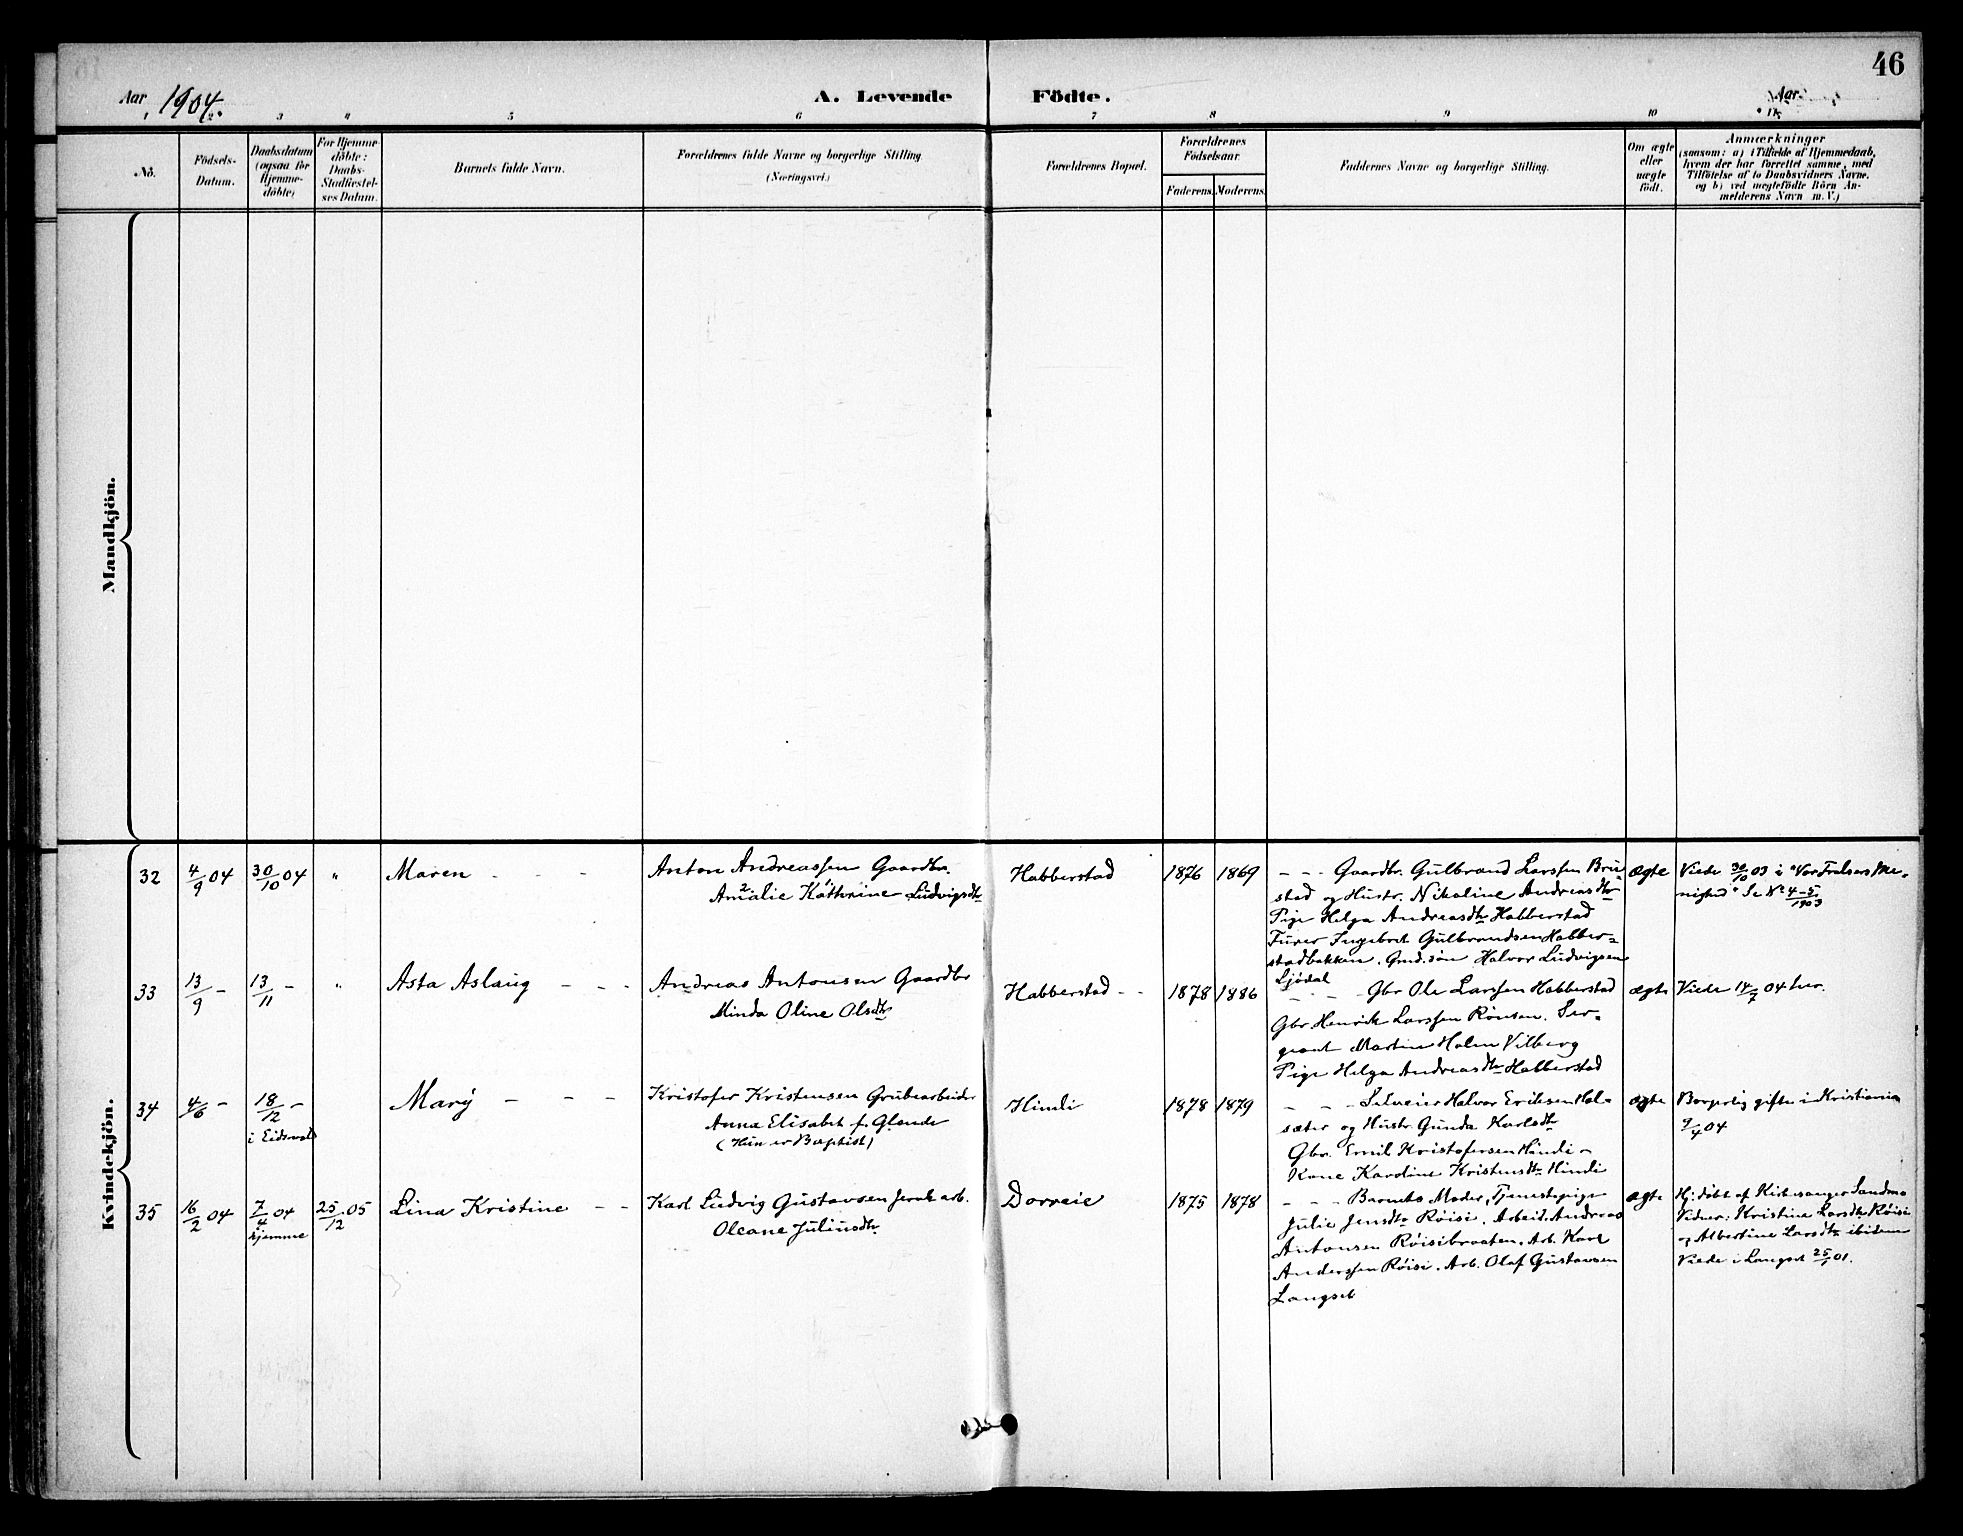 46
Aar 1904.
A. Levende Födte.
Aar
1 2 3 4 5 6 7 8 9 10 11
No.
Födsels-
Datum.
Daabsdatum
(ogsaa for
Hjemme-
döbte)
For Hjemme-
döbte:
Daabs-
Stadfæstel-
ses Datum.
Barnets fulde Navn.
Forældrenes fulde Navne og borgerlige Stilling
(Næringsvei.)
Forældrenes Bopæl.
Forældrenes
Födselsaar.
Faderens. Moderens.
Faddernes Navne og borgerlige Stilling.
Om ægte
eller
uægte
födt.
Anmærkninger
(saasom: a) i Tilfælde af Hjemmedaab,
hvem der har forrettet samme, med
Tilföielse af to Daabsvidners Navne.
og b) ved uægtefödte Börn An-
melderens Navn m. V.)
Mandkjön.
Kvindekjön.
32 4/9 04 30/10 04 " Maren - - -
Anton Andreassen Gaardbr.
Amalie Kathrine Ludvigsdtr
2. 1
Habberstad
1876 1869
- - - Gaardbr. Gulbrand Larssen Bru-
stad og Hustr. Nikoline Andreasdtr
Pige Helga Andreasdtr Habberstad
Ingebret Gulbrandsen Habber-
stadbakken. Gmd.søn Halvor Ludvigsen
Ljødal
ægte
Viede 30/10 03 i "Vor Frelsers Me-
nighed" Se No 4-5/1903
33 13/9 - 13/11 - " Asta Aslaug - - -
Andreas Antonsen Gaardbr
Minda Oline Olsdtr
Habberstad - -
1878 1886
- - - Gbr Ole Larssen Habberstad
Gbr Henrik Larssen Rønsen. Ser-
geant Martin Holm Vilberg
Pige Helga Andreasdtr Habberstad
ægte
Viede 14/7 04 her.
34 4/6 - 18/12 -
i Eidsvold
Mary - - -
Kristofer Kristensen Grubearbeider
Anna Elisabet f. Glende
(Hun er Baptist)
Himli
1878 1879
- - - Selveier Halvor Eriksen Hol-
sæter og Hustr. Gunda Karlsdtr
Gbr. Emil Kristofersen Himli -
Kone Karoline Kristensdtr Himli
ægte
Borgerlig gifte i Kristiania
9/4 04
35 16/2 04 7/4 04
hjemme
25/12 05
Lina Kristine - -
Karl Ludvig Gustavsen Jernb. arb.
Oleane Juliusdtr
Dorreie
1875 1878
- - - Barnets Moder, Tjenestepige
Julie Jensdtr Røisi. Arbeid. Andreas
Antonsen Røisibraaten. Arb. Karl
Anderssen Røisi. Arb. Olaf Gustavsen
Langset
ægte
Hj: døbt af Kirkesanger Sandmo
Vidner: Kristine Larsdtr Røisi
og Albertine Larsdtr ibidem
Viede i Langset 25/1 01.